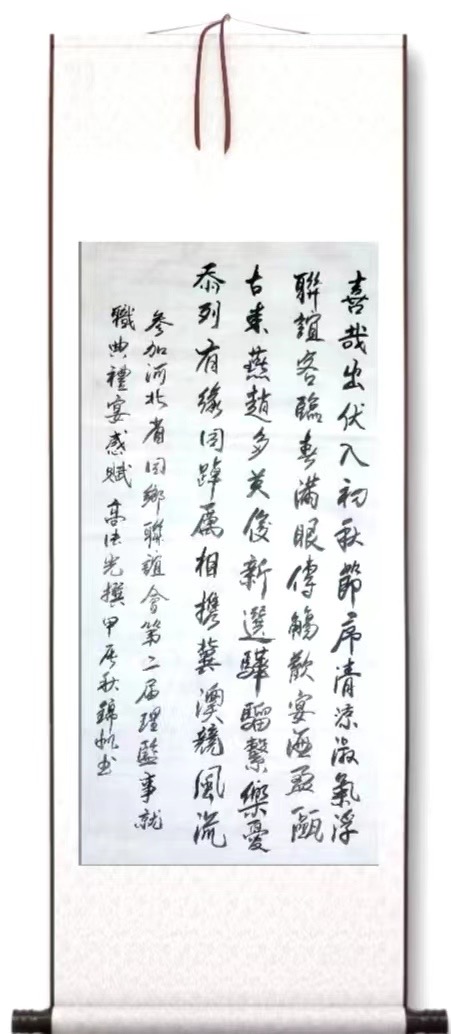 喜哉出伏入初秋節序清涼淑氣浮
聯誼客臨春滿眼傳觴歡宴酒盈甌
古來燕趙多英俊新選驊騮繫樂憂
忝列有緣同踔厲相携冀澳競風流
參加河北省同鄉聯誼會第二屆理監事就
職典禮宴感賦 高法光撰甲辰秋錦帆書